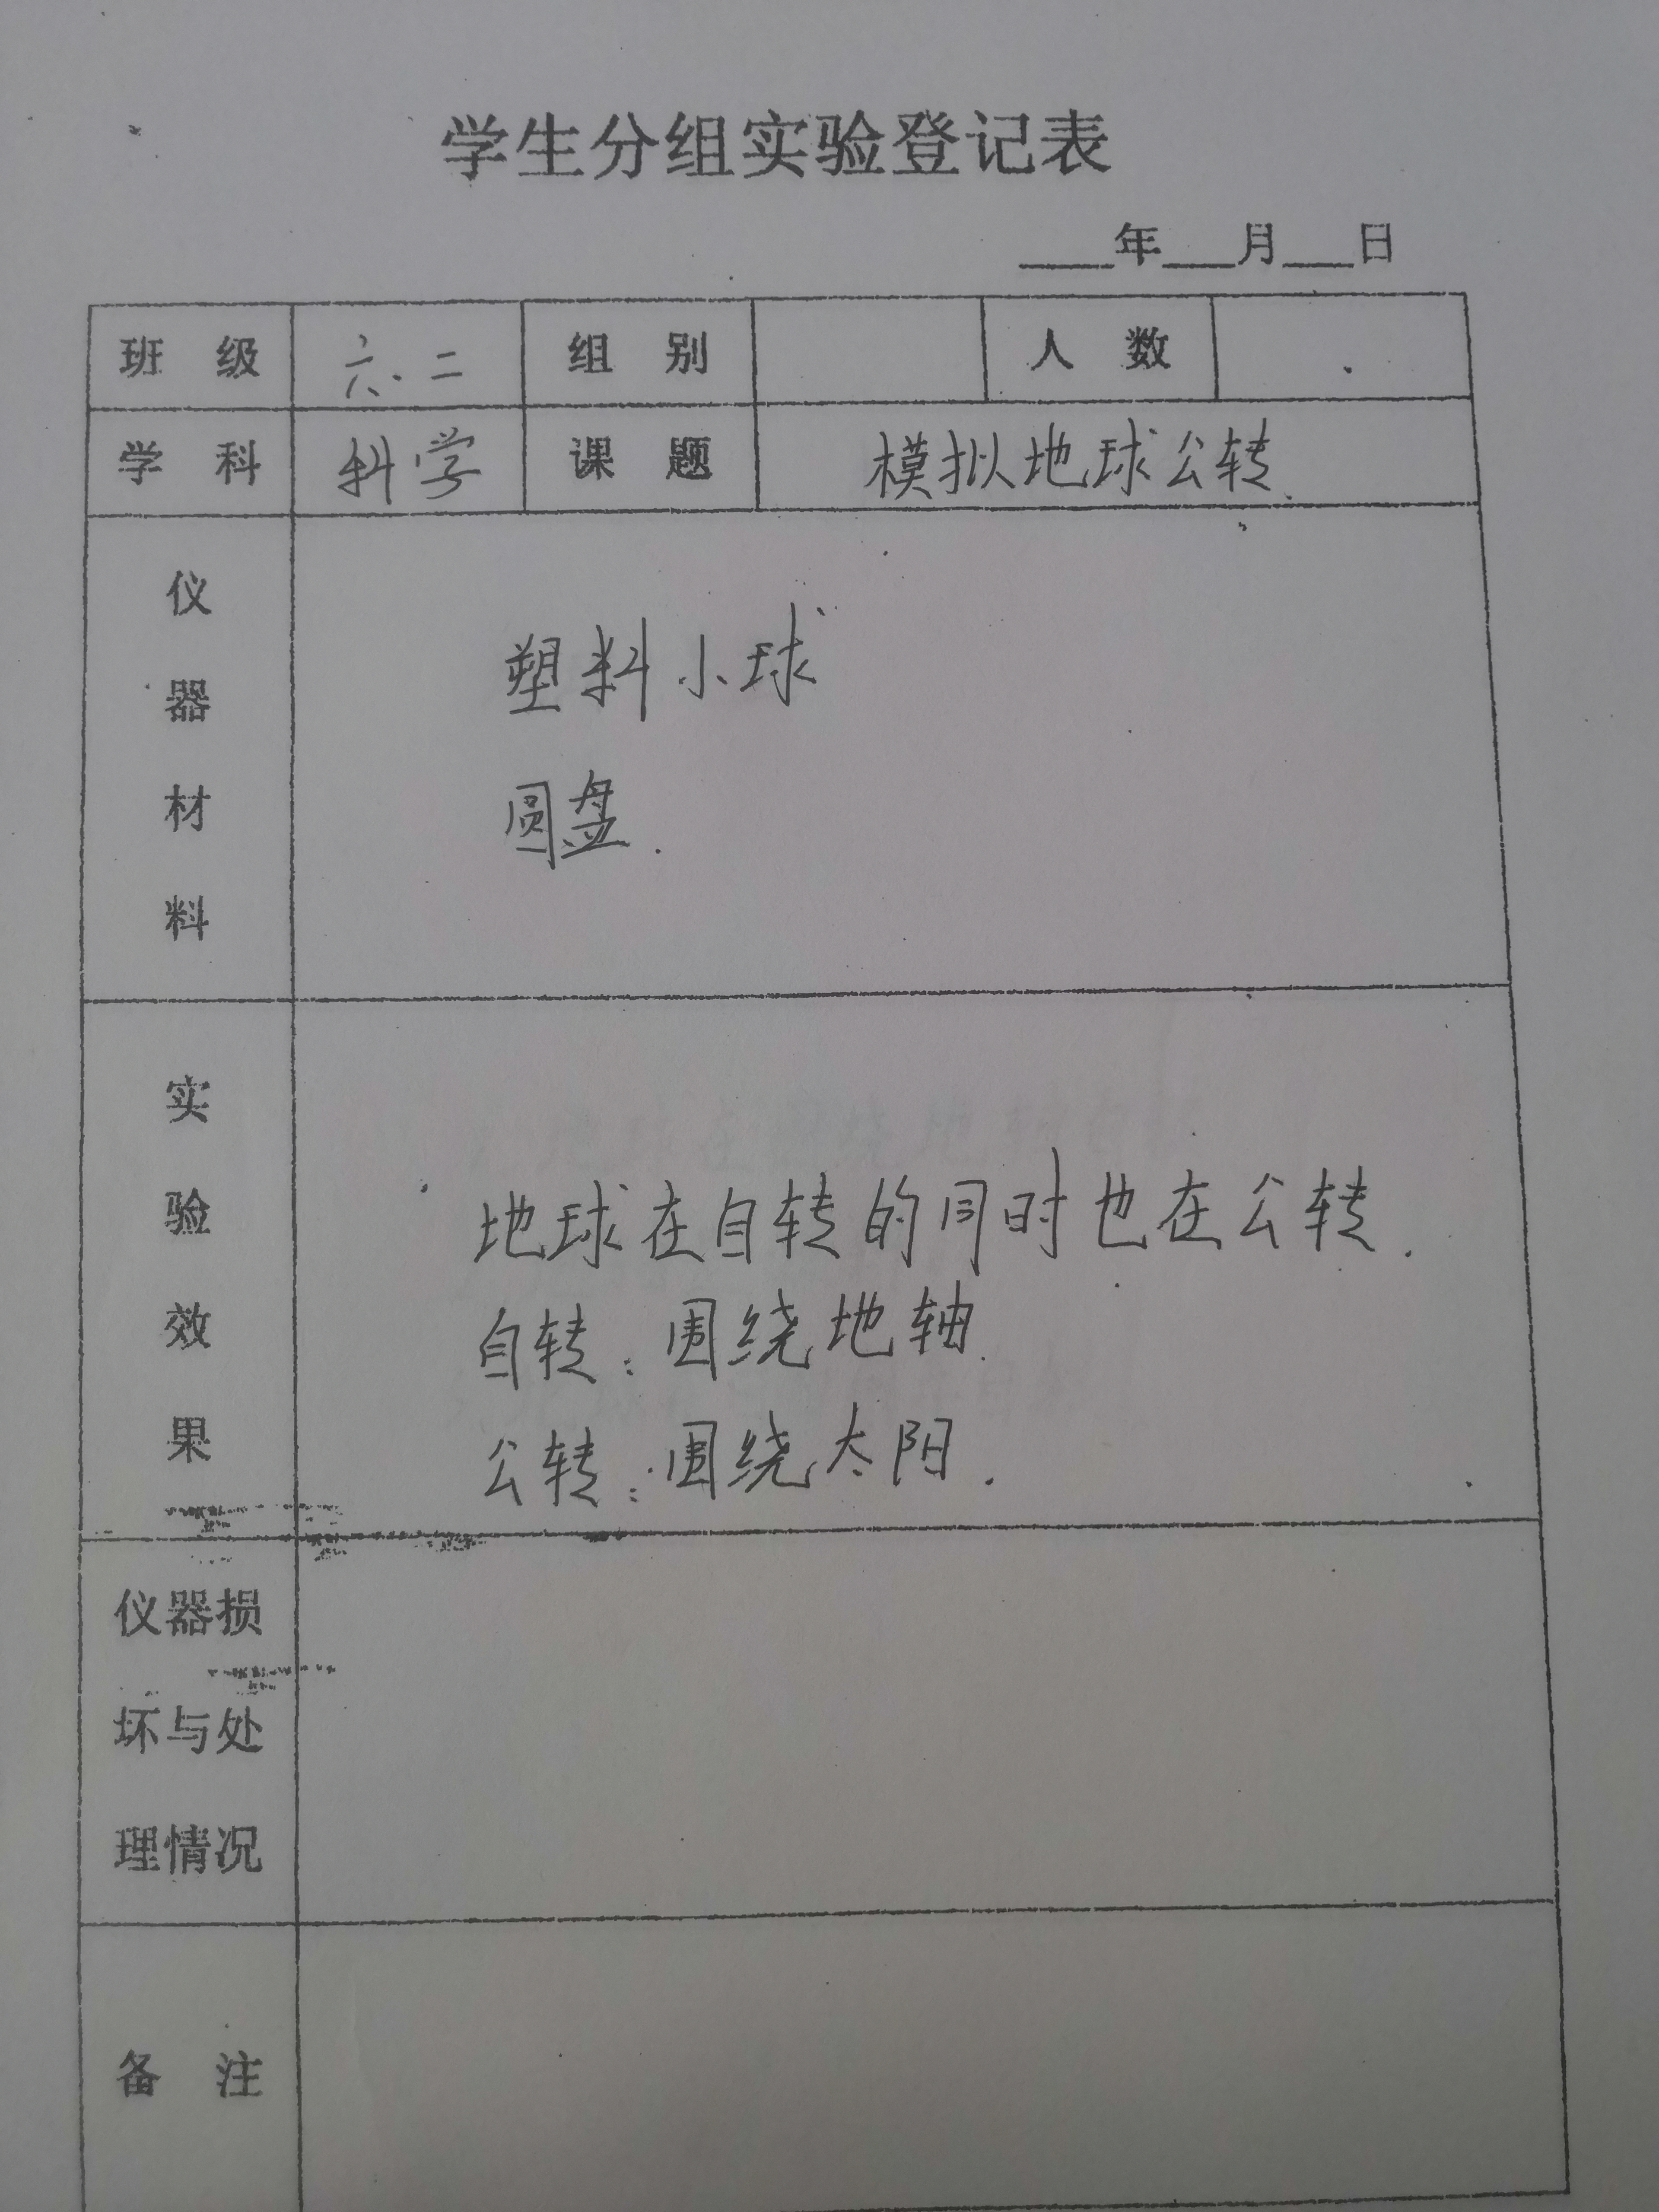 学生分组实验登记表
____年___月___日
班 级 六.二 组 别 人 数
学 科 科学 课 题 模拟地球公转.
仪器材料
塑料小球
圆盘.
实验效果
地球在自转的同时也在公转.
自转:围绕地轴.
公转:围绕太阳.
仪器损
坏与处
理情况
备 注